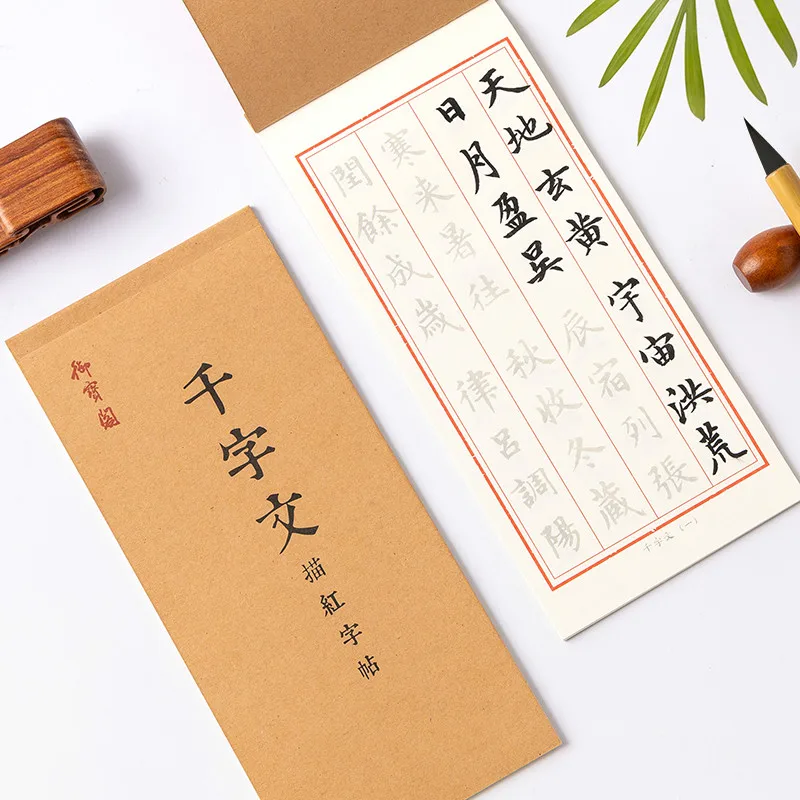 御寶閣
千字文
描紅字帖
天地玄黄宇宙洪荒
日月盈昃辰宿列張
寒来暑往秋收冬藏
閏餘成歲律呂調陽
千字文（一）